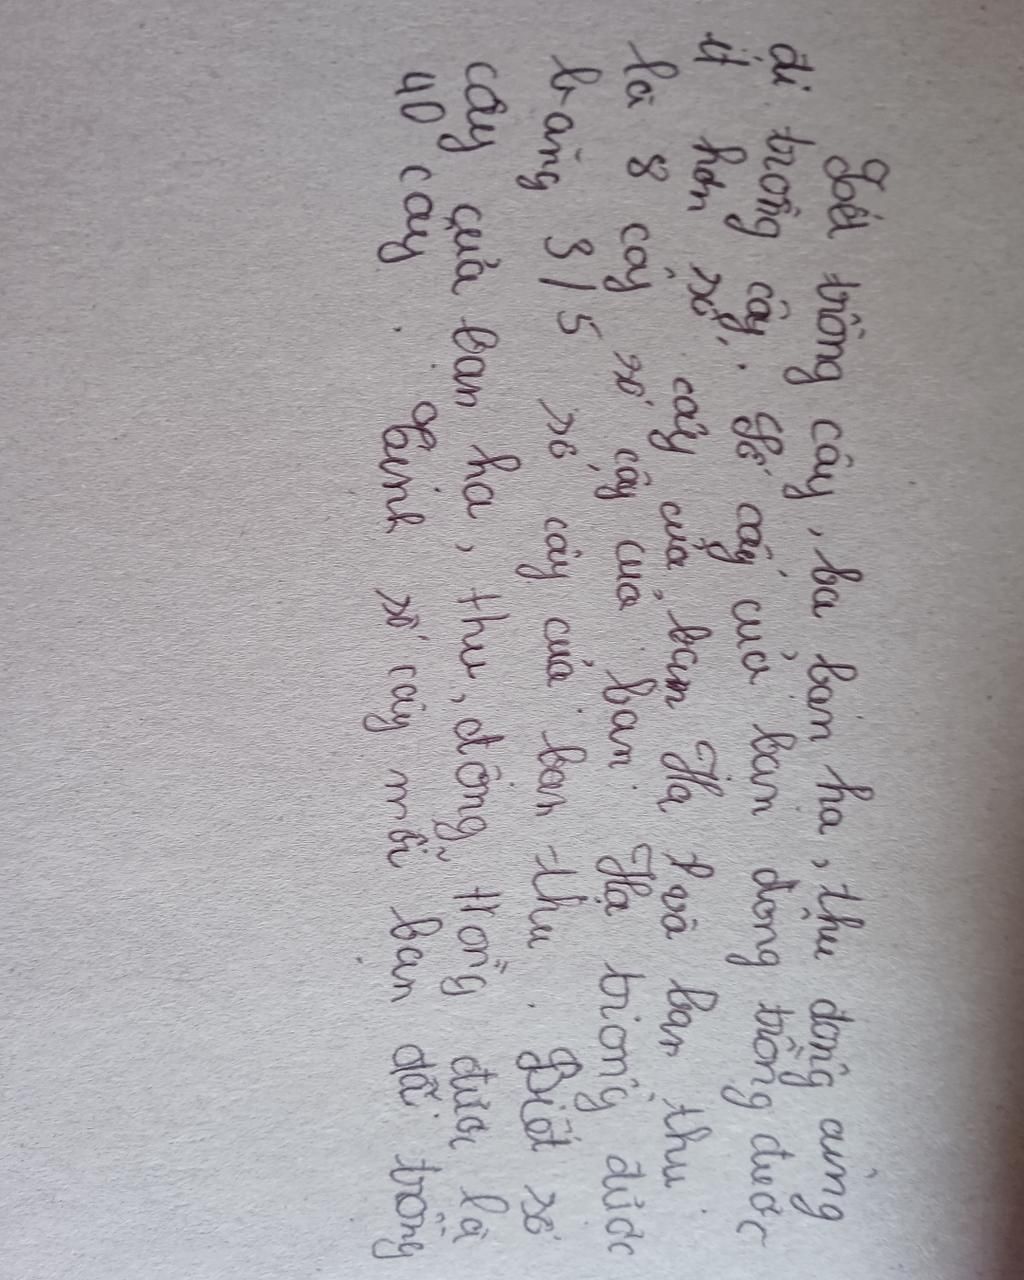 Tết trồng cây, ba bạn hạ, thu đông cùng
đi trồng cây. Số cây của bạn đông trồng được
ít hơn số cây của bạn Hạ và bạn thu
là 8 cây số cây của bạn Hạ trồng được
bằng 3/5 số cây của bạn thu. Biết số
cây của bạn hạ, thu, đông trồng được là
40 cây. Tính số cây mỗi bạn đã trồng